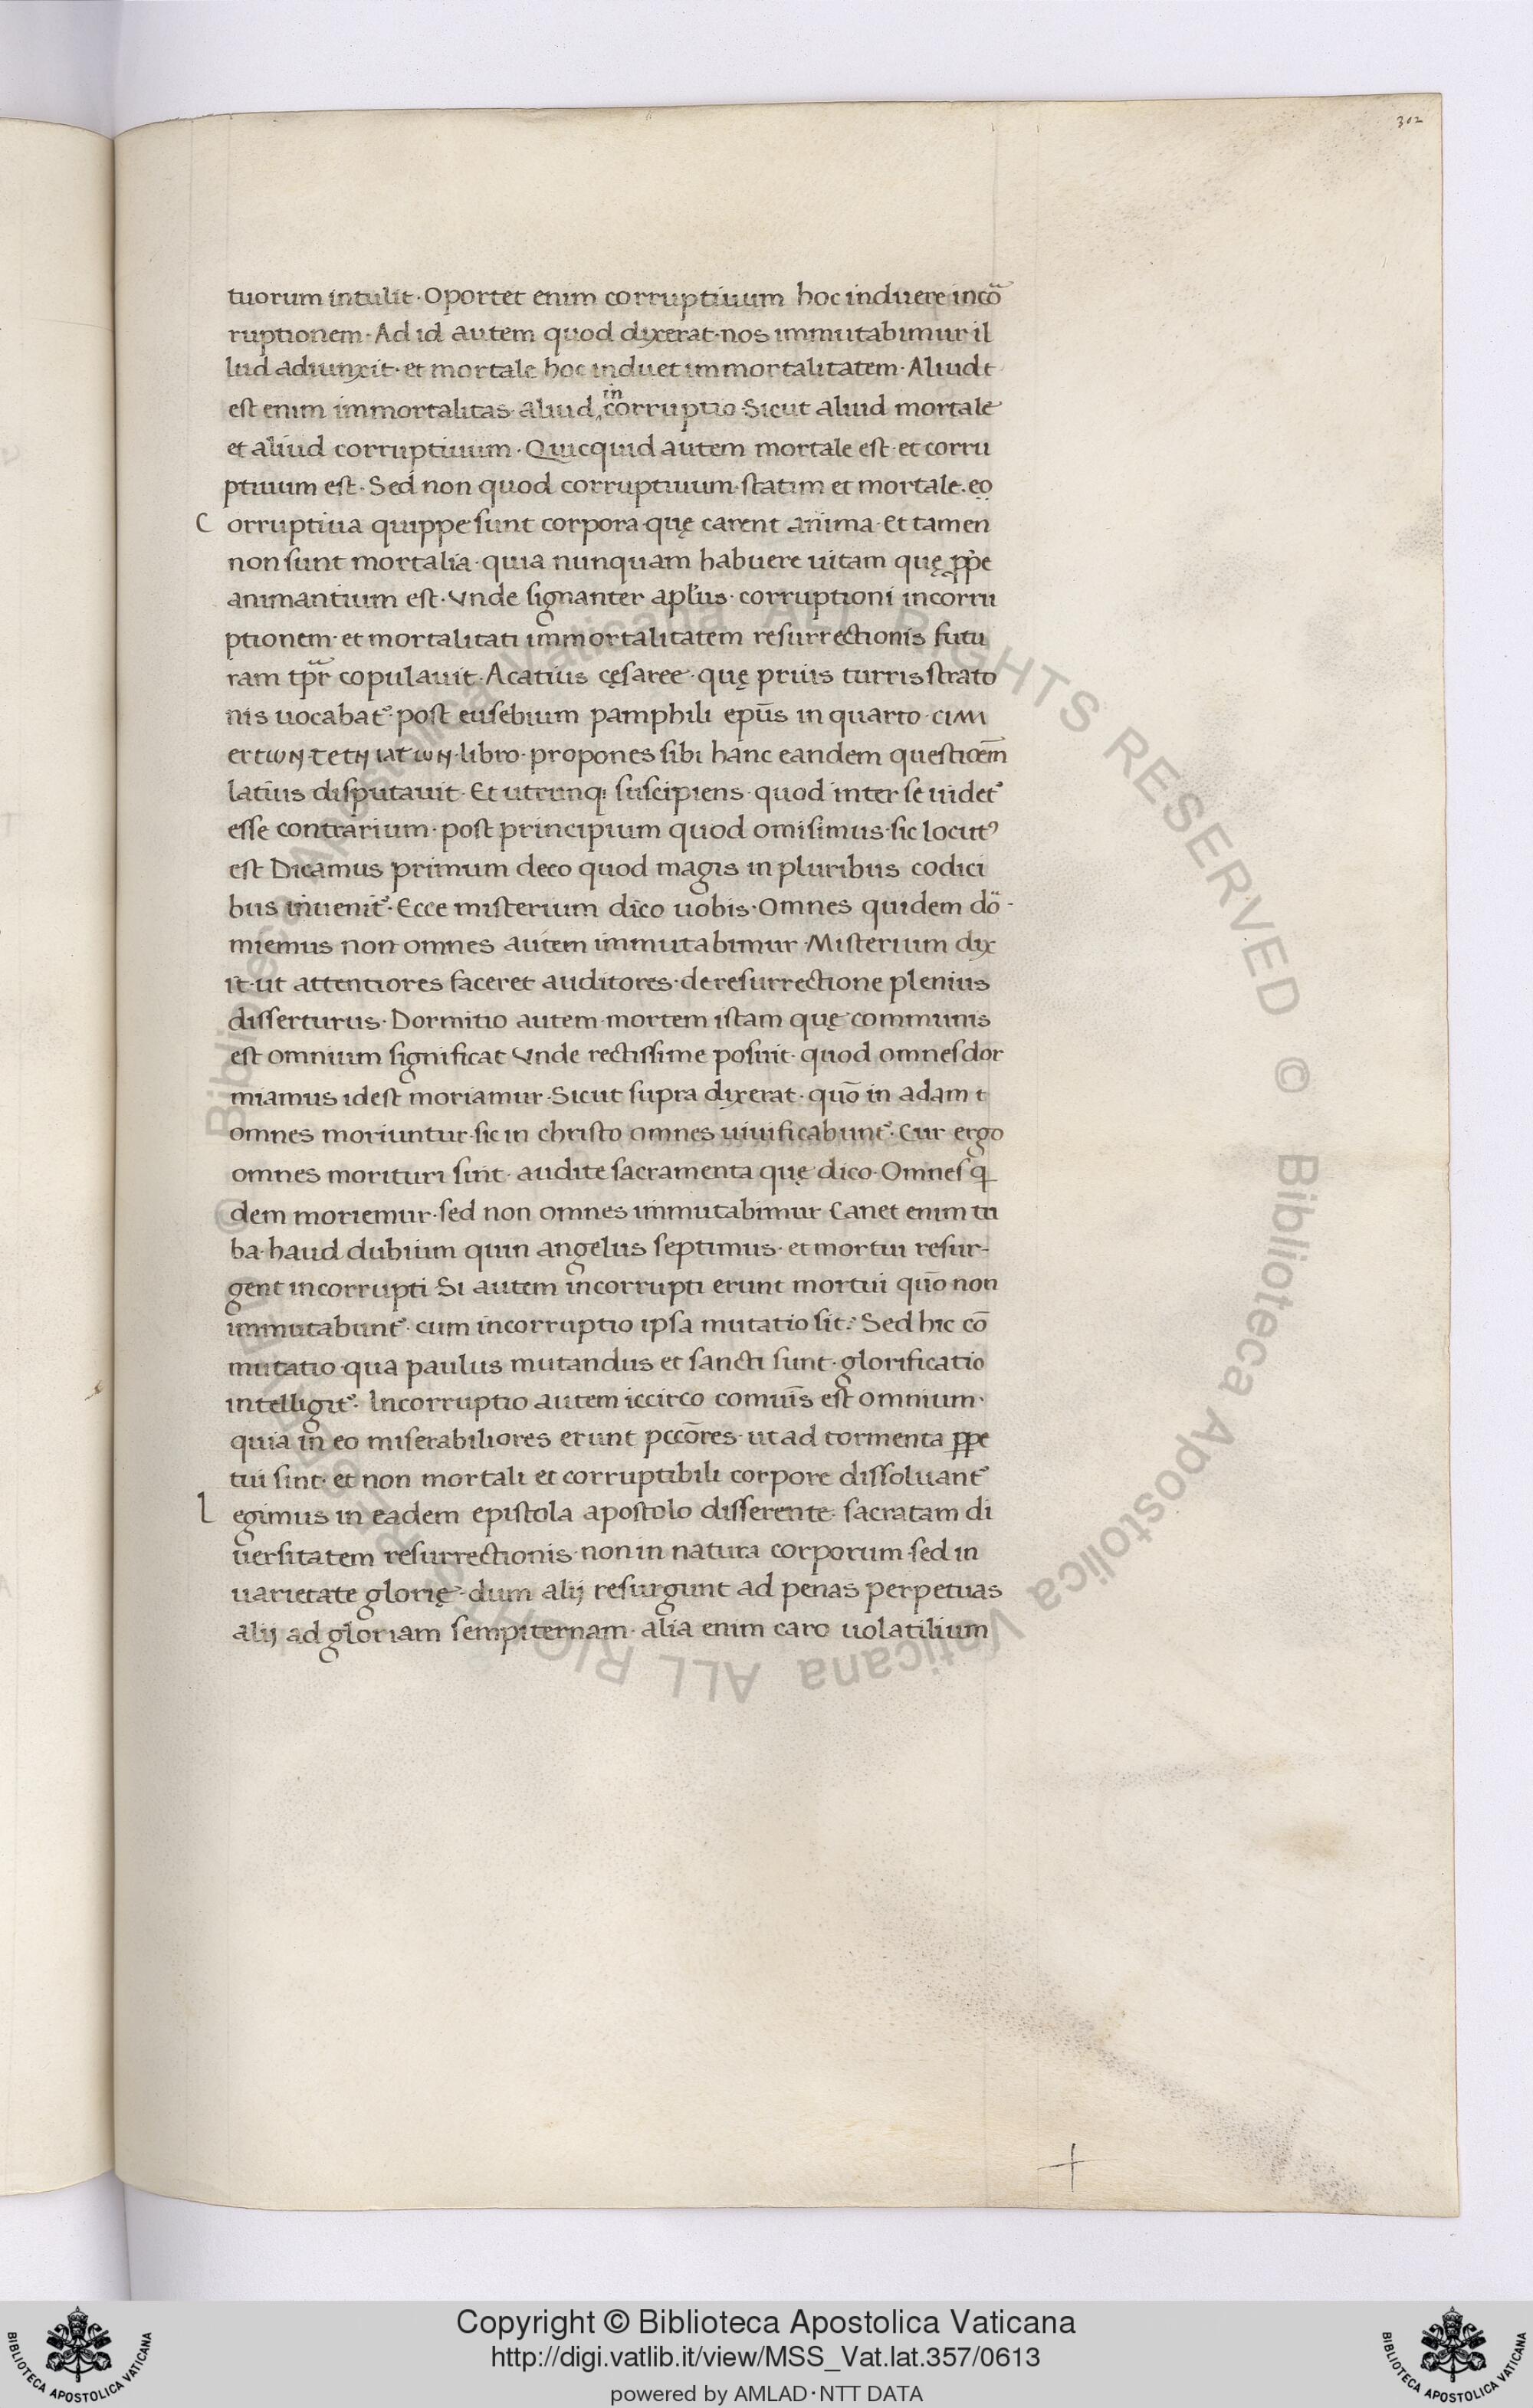 302
tuorum intulit· Oportet enim corruptiuum hoc induere incō
ruptionem· Ad id autem quod dixerat· nos immutabimur il
lud adiunxit· et mortale hoc induet immortalitatem· Aliud t
est enim immortalitas· aliud incorruptio· Sicut aliud mortale
et aliud corruptiuum· Quicquid autem mortale est· et corru
ptiuum est· Sed non quod corruptiuum· statim et mortale· eo
C orruptiua quippe sunt corpora quę carent anima· Et tamen
non sunt mortalia· quia nunquam habuere uitam quę ꝓpe
animantium est· Vnde signanter apl̄us· corruptioni incorru
ptionem· et mortalitati immortalitatem resurrectionis futu
ram tp̄r copulauit· Acatius cęsaree· quę prius turris strato
nis uocabat᷒· post eusebium pamphili ep̄us in quarto· CIM
ertωN·TETN IATωN· libro· propones sibi hanc eandem questiōem
latius disputauit· Et utrunq; suscipiens· quod inter se uidet᷒
esse contrarium· post principium quod omisimus· sic locutꝰ
est Dicamus primum deeo quod magis in pluribus codici
bus inuenit᷒· Ecce misterium dico uobis· Omnes quidem dō
miemus non omnes autem immutabimur· Misterium dix
it· ut attentiores faceret auditores· de resurrectione plenius
disserturus· Dormitio autem· mortem istam quę communis
est omnium significat Vnde rectissime posuit· quod omnes dor
miamus idest moriamur· Sicut supra dixerat· quō in adam t
omnes moriuntur· sic in christo omnes uiuificabunt᷒· Cur ergo
omnes morituri sint· audite sacramenta quę dico· Omnes q̄
dem moriemur· sed non omnes immutabimur Canet enim tu
ba· haud dubium quin angelus septimus· et mortui resur-
gent incorrupti Si autem incorrupti erunt mortui quō non
immutabunt᷒· cum incorruptio ipsa mutatio sit? Sed hic cō
mutatio· qua paulus mutandus et sancti sunt· glorificatio
intelligit᷒· Incorruptio autem iccirco comuīs est omnium·
quia in eo miserabiliores erunt pccōres· ut ad tormenta ꝑpe
tui sint· et non mortali et corruptibili corpore dissoluant᷒
l egimus in eadem epistola apostolo disserente· sacratam di
uersitatem resurrectionis· non in natura corporum· sed in
uarietate glorię· dum alij resurgunt ad penas perpetuas
alij ad gloriam sempiternam· alia enim caro uolatilium
© Biblioteca Apostolica Vaticana ALL RIGHTS RESERVED © Biblioteca Apostolica Vaticana ALL RIGHTS RESERVED
BIBLIOTECA APOSTOLICA VATICANA
Copyright © Biblioteca Apostolica Vaticana
http://digi.vatlib.it/view/MSS_Vat.lat.357/0613
powered by AMLAD·NTT DATA
BIBLIOTECA APOSTOLICA VATICANA